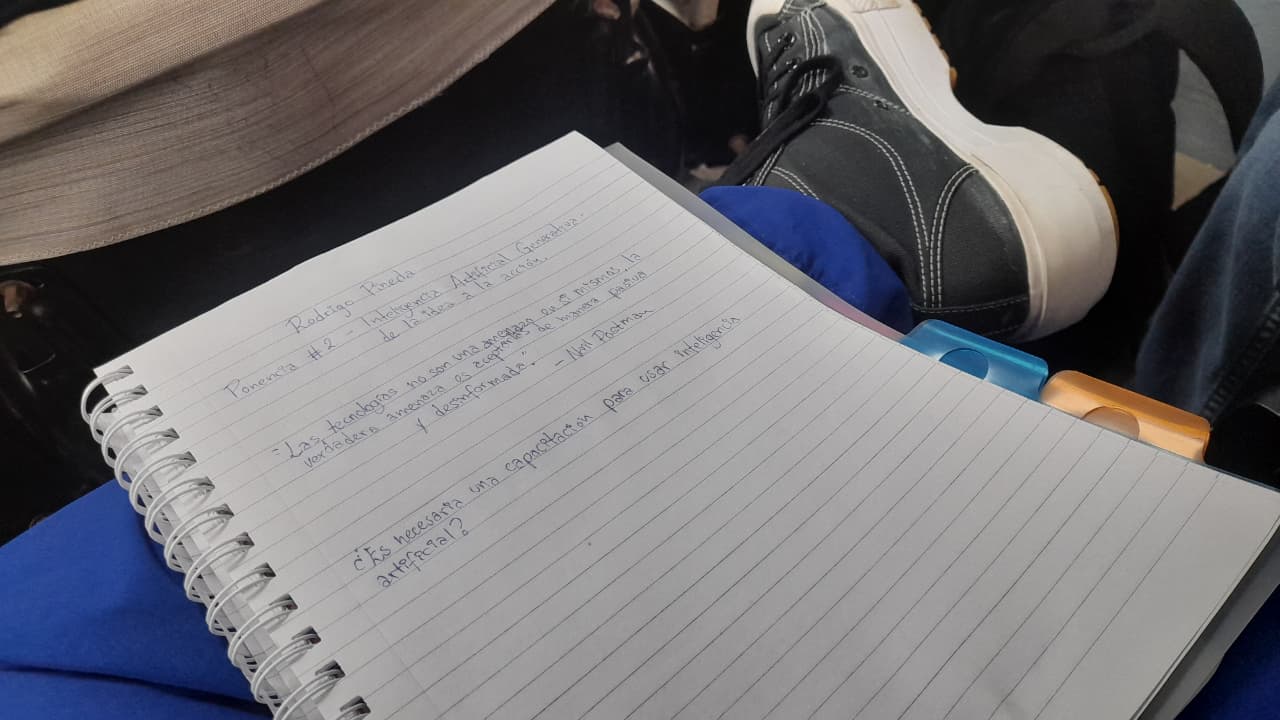 Rodrigo Pineda
Ponencia #2 - Inteligencia Artificial Generativa:
de la idea a la acción.
"Las tecnologías no son una amenaza en sí mismas, la
verdadera amenaza es aceptarlas de manera pasiva
y desinformada." - Neil Postman
¿Es necesaria una capacitación para usar inteligencia
artificial?